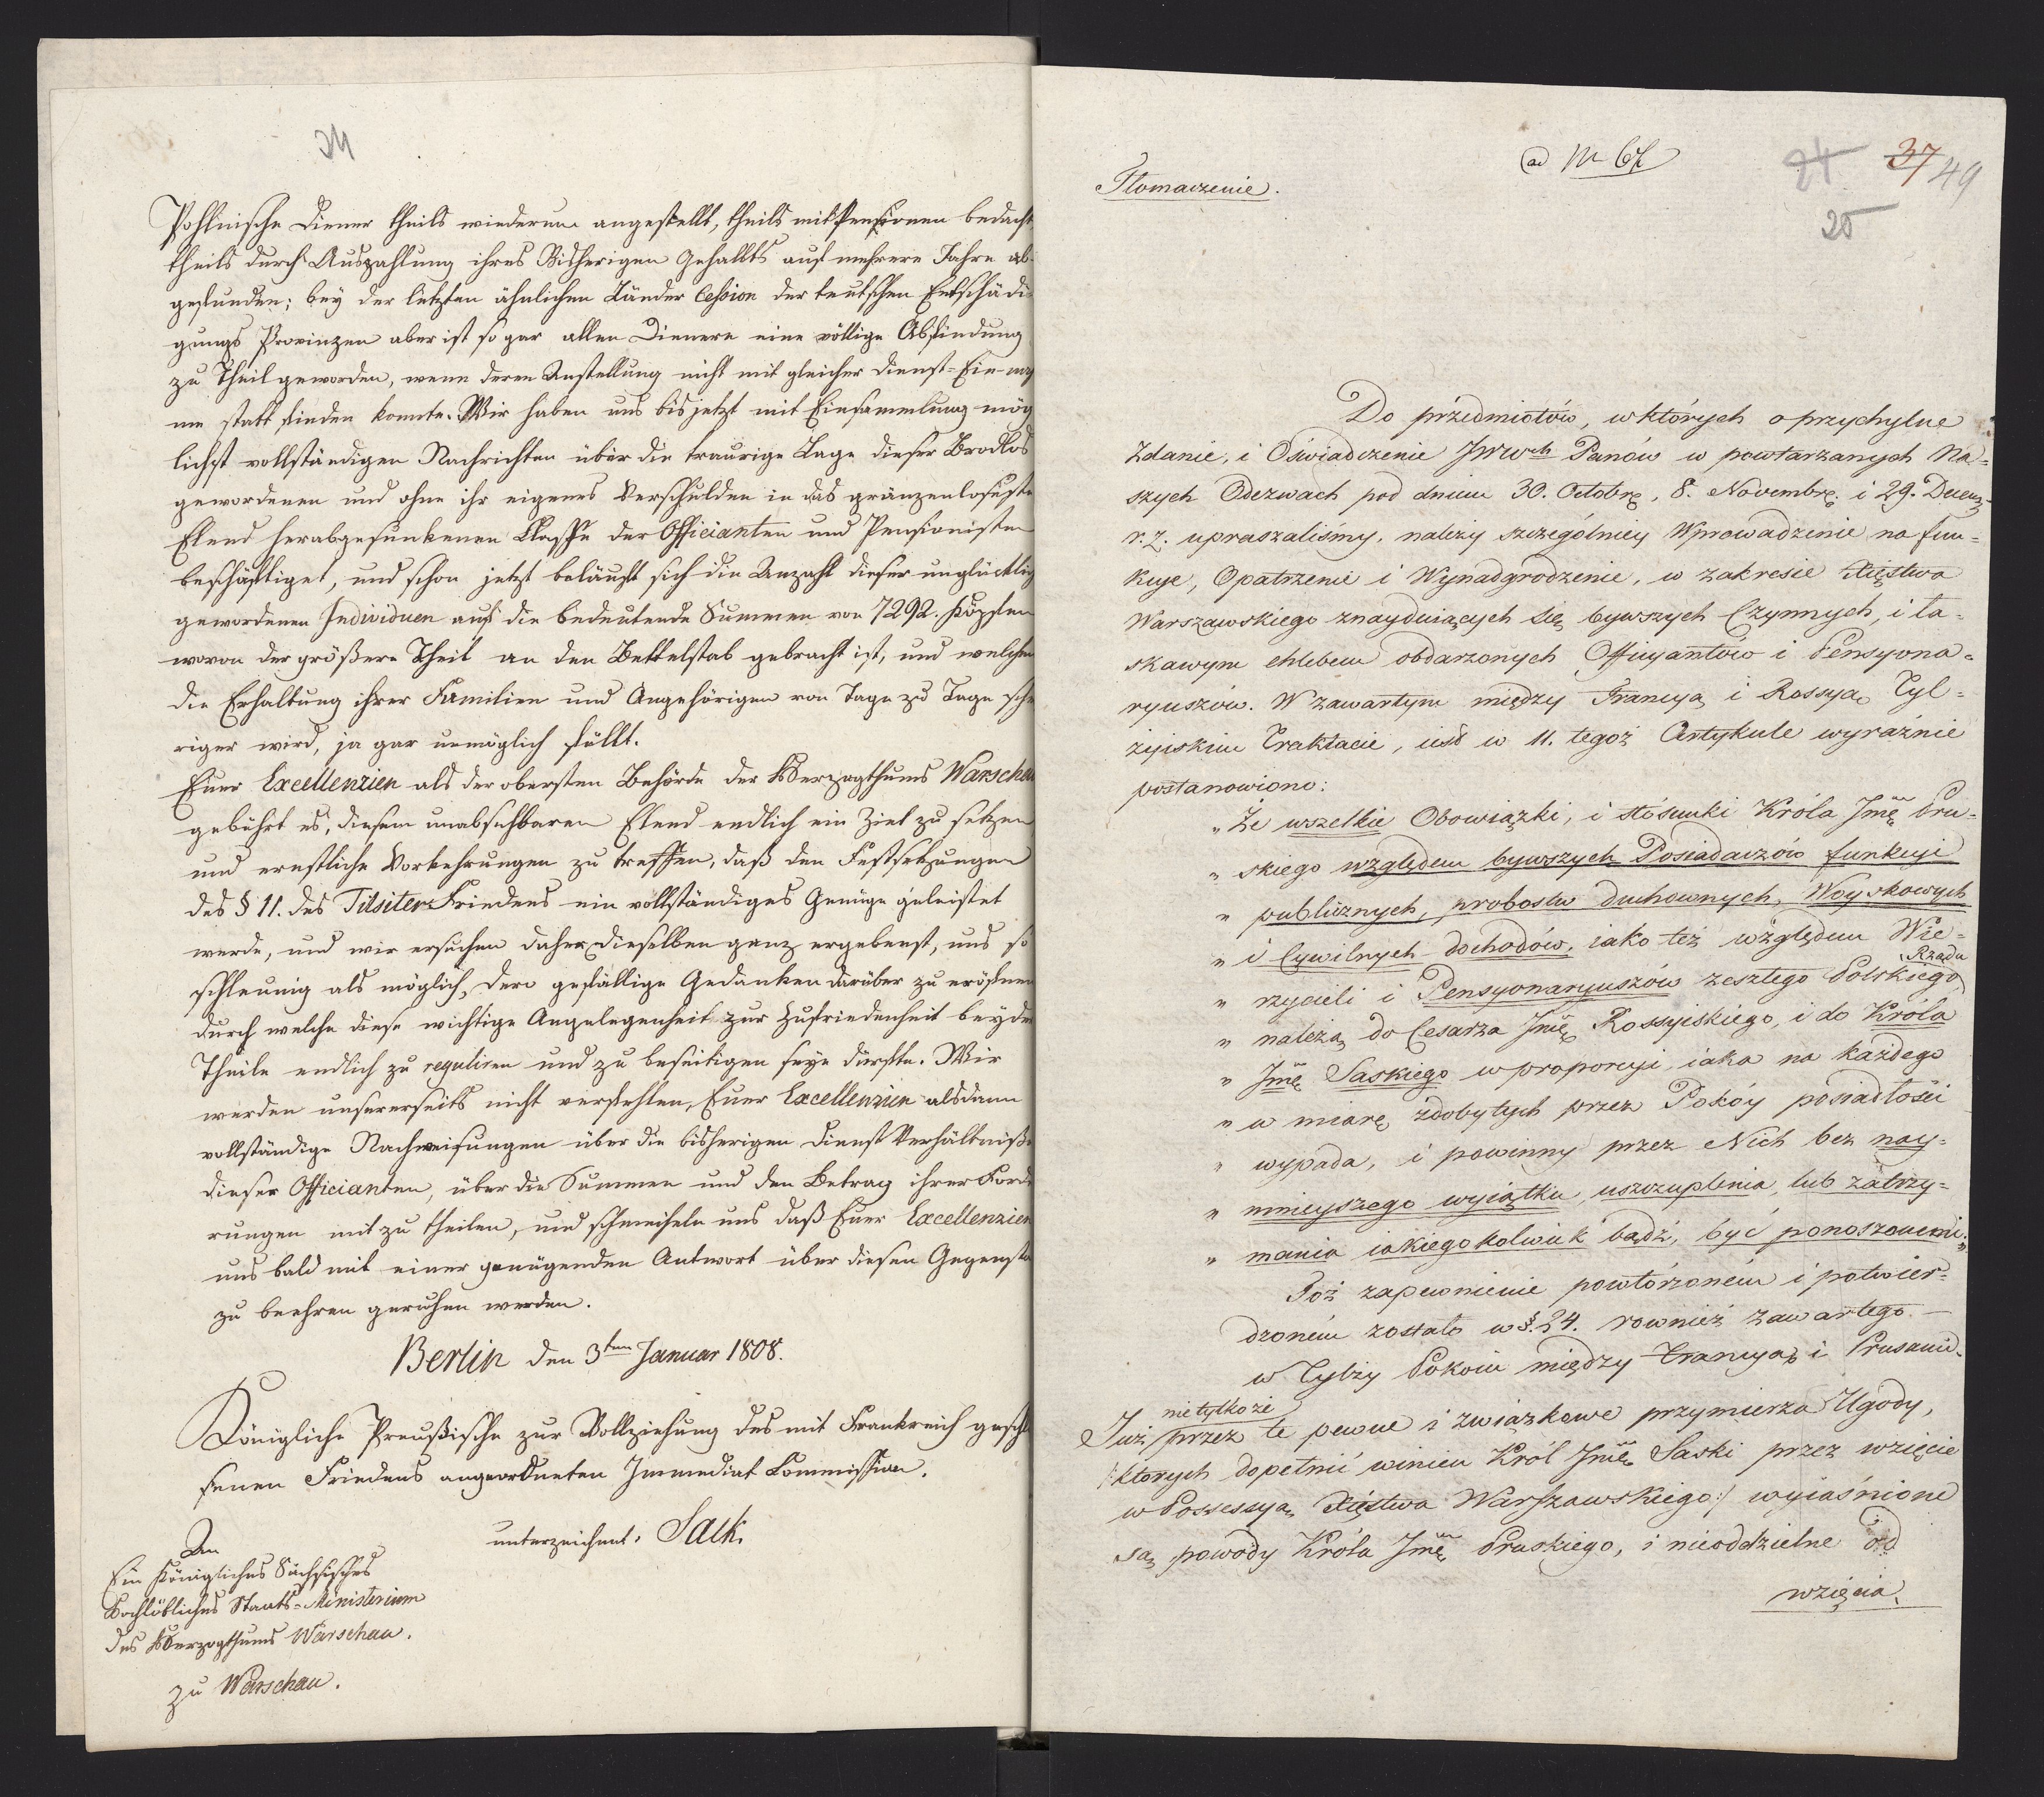 Pohlnische Diener theils wiederum angestellt, theils mit Pensionen bedacht
theils durch Auszahlung ihres bisherigen Gehallts auf mehrere Jahre ab-
gefunden; bey der letzten ähnlichen Länder Cession der teutschen Entschädi
gungs Provinzen aber ist so gar allen Dienern eine völlige Abfindung
zu Theil geworden, wenn deren Anstellung nicht mit gleicher Dienst-Ein-nah
me statt finden konnte. Wir haben uns bis jetzt mit Einsammlung mög
lichst vollständigen Nachrichten über die traurige Lage dieser Brodlos
gewordenen und ohne ihr eigenes Verschulden in das gränzenloseste
Elend herabgesunkenen Classe der Officianten und Pensionisten
beschäftiget, und schon jetzt beläuft sich die Anzahl dieser unglücklich
gewordenen Individuen auf die bedeutende Summen von 7292. Köpfen
wovon der größere Theil an den Bettelstab gebracht ist, und welchen
die Erhaltung ihrer Familien und Angehörigen von Tage zu Tage schwie
riger wird, ja gar unmöglich fällt.
Euer Excellenzien als der obersten Behörde der Herzogthums Warschau
gebührt es, diesem unabsehbaren Elend endlich ein Ziel zu setzen
und ernstliche Vorkehrungen zu treffen, daß den Festsetzungen
des § 11. des Tilsiter Friedens ein vollständiges Genüge geleistet
werde, und wir ersuchen daher dieselben ganz ergebenst, uns so
schleunig als möglich, dero gefällige Gedanken darüber zu eröfnen
durch welche diese wichtige Angelegenheit zur Zufriedenheit beyder
Theile endlich zu reguliren und zu beseitigen seyn dürfte. Wir
werden unsererseits nicht verfehlen, Euer Excellenzien alsdann
vollständige Nachweisungen über die bisherigen Dienst Verhältniße
dieser Officianten, über die Summen und den Betrag ihrer Forde
rungen mit zu theilen, und schmeicheln uns daß Euer Excellenzien
uns bald mit einer genügenden Antwort über diesen Gegensta
zu beehren geruhen werden.
Berlin den 3ten Januar 1808.
Königliche Preußische zur Vollziehung des mit Frankreich geschl
senen Friedens angeordneten Immediat Commission.
unterzeichnet. Sack.
An
Ein Königliches Sächsisches
Hochlöbliches Staats-Ministerium
des Herzogthums Warschau.
zu Warschau.
ad N 67
24 37 49
25
Tłomaczenie.
Do przedmiotów, w których o przychylne
Zdanie, i Oświadczenie JWWch Panów w powtarzanych Na=
szych Odezwach pod dniem 30. Octobrę, 8. Novembrę. i 29. Decem
r. z. upraszaliśmy, należy szczególniey Wprowadzenie na fun=
kcye, Opatrzenie i Wynadgrodzenie, w zakresie Xięstwa
Warszawskiego znayduiących się bywszych Czynnych, i ła=
skawym chlebem obdarzonych Officyantów i Pensyona=
ryuszów. W zawartym między Francyą i Rossyą Tyl=
żyiskim Traktacie, iest w 11. tegoż Artykule wyraźnie
postanowiono:
"Że wszelkie Obowiązki, i stósunki Króla Jmę Pru=
" skiego względem bywszych Posiadaczów funkcyi
" publicznych, probostw duchownych, Woyskowych
" i Cywilnych dochodów, iako też względem Wie=
" rzycieli i Pensyonaryuszów zeszłego Rządu Polskiego
" należą do Cesarza Jmę Rossyiskiego, i do Króla
" Jmę Saskiego w proporcyi, iaka na każdego
" w miarę zdobytych przez Pokóy posiadłości
" wypada, i powinny przez Nich bez nay=
" mnieyszego wyiątku, uszczuplenia, lub zatrzy=
" mania iakiegokolwiek bądź, być ponoszonemi."
Toż zapewnienie powtórzoném i potwier=
dzoném zostało w §. 24. rownież zawartego
w Tylży Pokoiu między Francyą i Prusami.
Już nie tylko że przez te pewne i związkowe przymierza Ugody,
/:ktorych dopełnić winien Król Jmę Saski przez wzięcie
w Possessyą Xięstwa Warszawskiego:/ wyiaśnione
są powody Króla Jmę Pruskiego, i nieoddzielne od
wzięcia